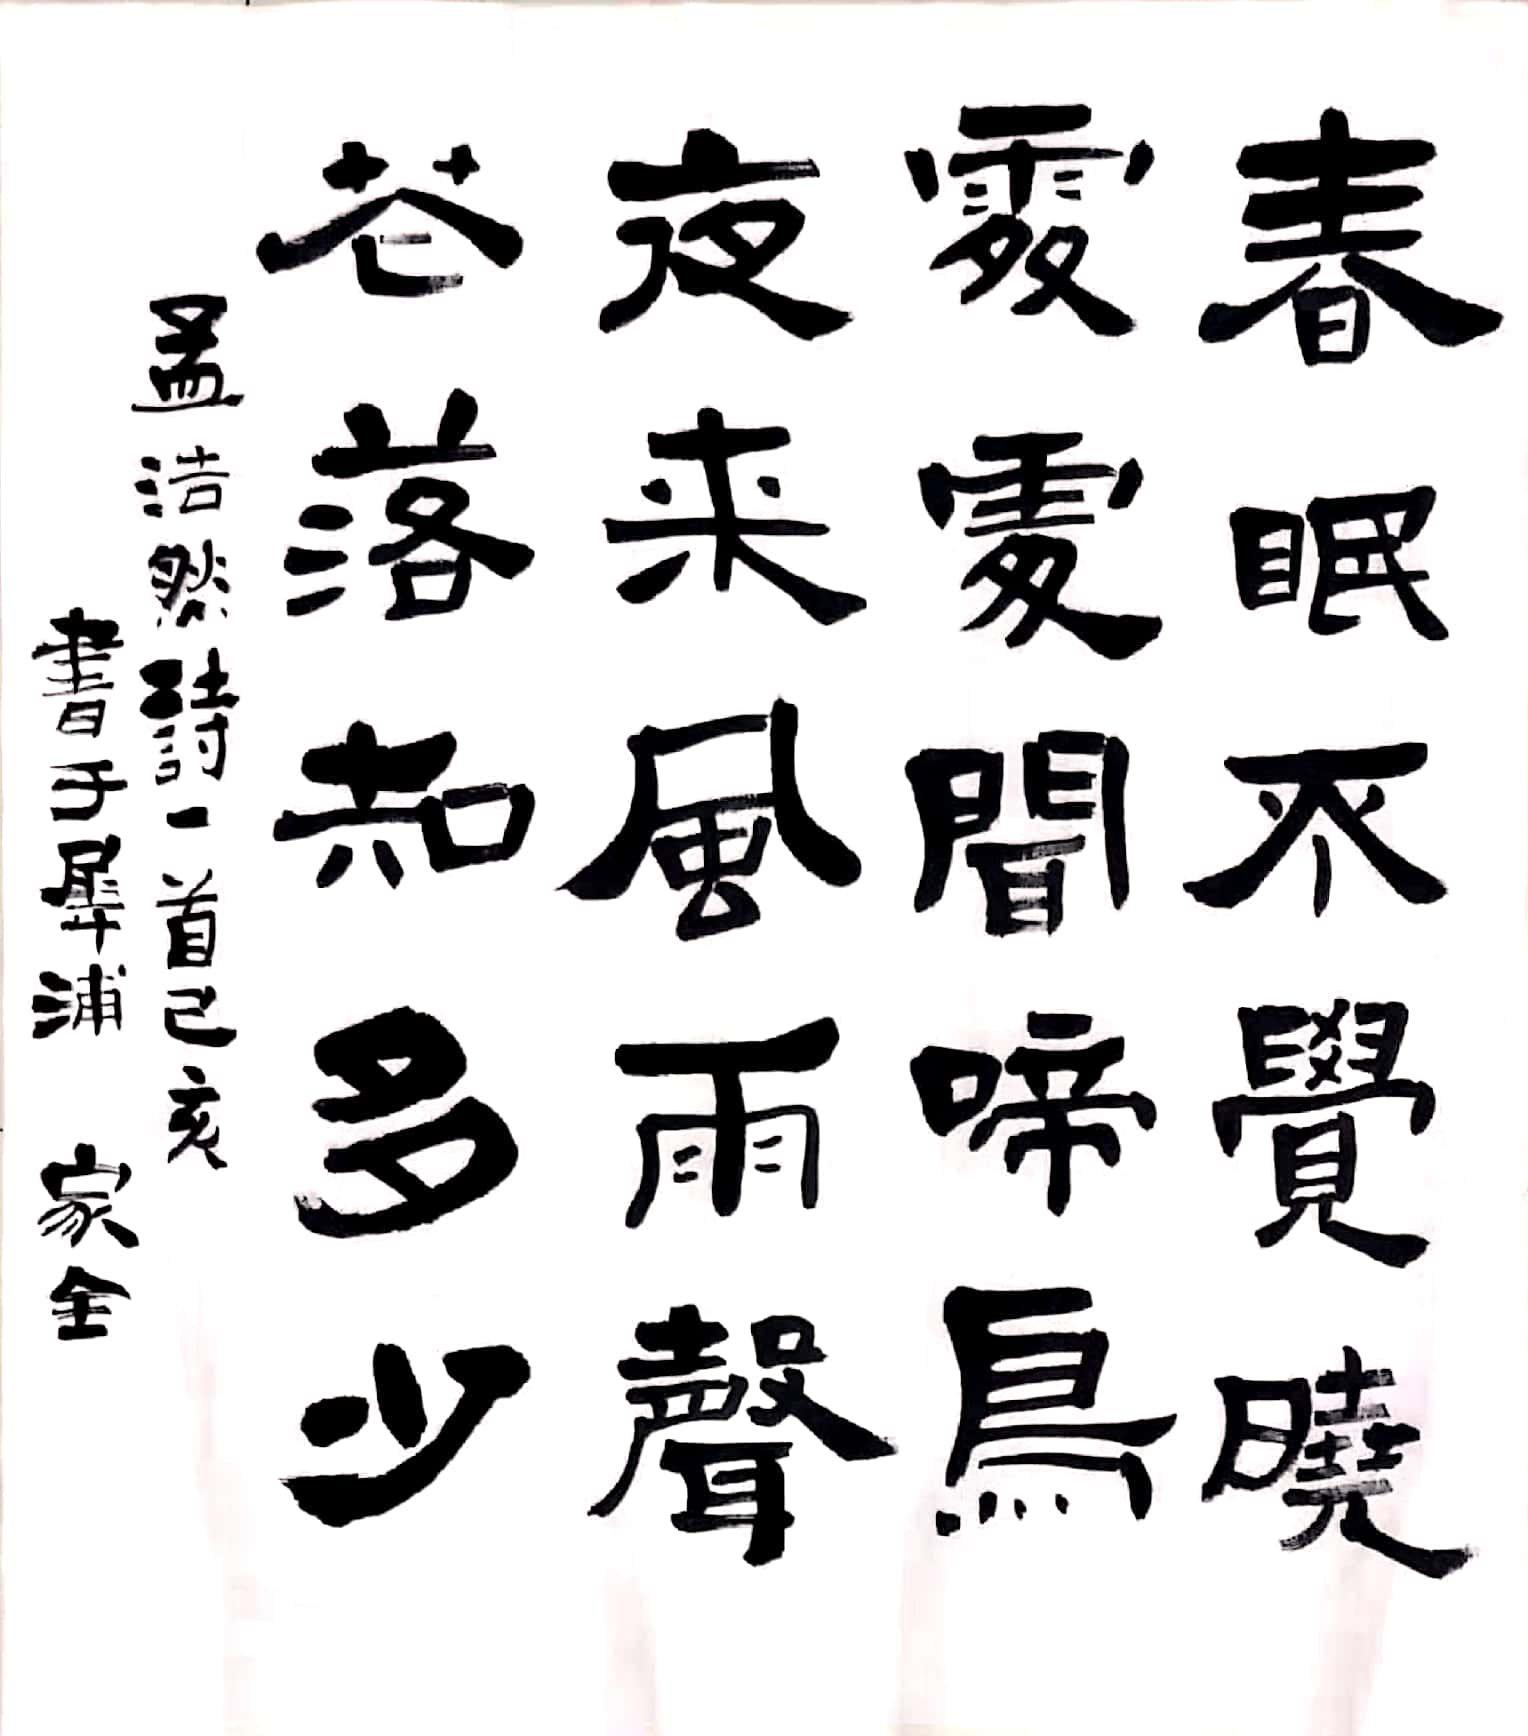 春眠不覺曉
處處聞啼鳥
夜来風雨聲
花落知多少
孟浩然詩一首己亥
書于犀浦 家全